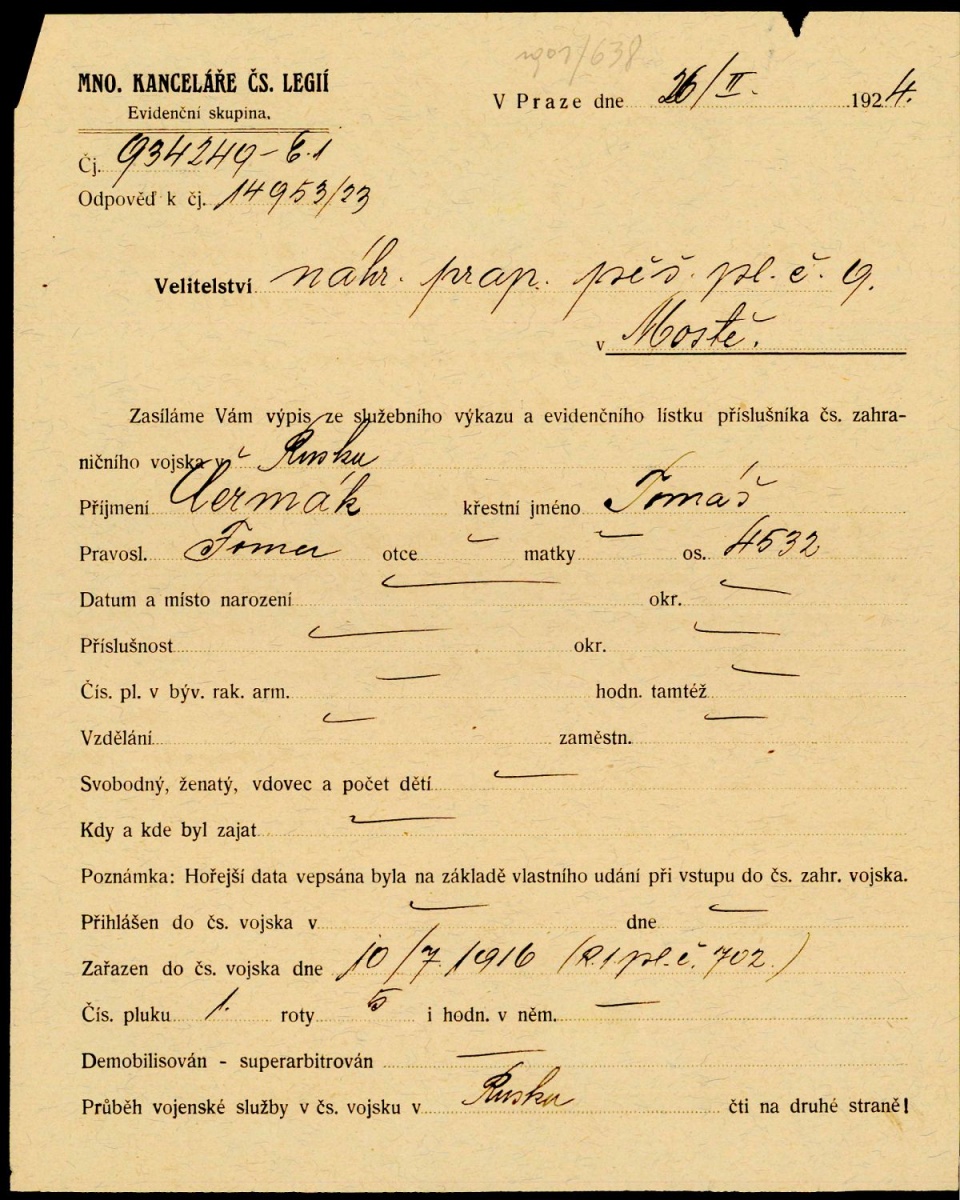 MNO. KANCELÁŘE ČS. LEGIÍ
Evidenční skupina.
V Praze dne 26/II. 1924.
Čj. 934249-E.1
Odpověď k čj. 14953/23
Velitelství náhr. prap. pěš. pl. č. 9.
v Mostě.
Zasíláme Vám výpis ze služebního výkazu a evidenčního lístku příslušníka čs. zahra-
ničního vojska v Rusku
Příjmení Čermák křestní jméno Tomáš
Pravosl. Foma otce matky os. 4532
Datum a místo narození okr.
Příslušnost okr.
Čís. pl. v býv. rak. arm. hodn. tamtéž
Vzdělání zaměstn.
Svobodný, ženatý, vdovec a počet dětí
Kdy a kde byl zajat
Poznámka: Hořejší data vepsána byla na základě vlastního udání při vstupu do čs. zahr. vojska.
Přihlášen do čs. vojska v dne
Zařazen do čs. vojska dne 10/7. 1916 (R. 1 pl. č. 702.)
Čís. pluku 1. roty 5 i hodn. v něm.
Demobilisován - superarbitrován
Průběh vojenské služby v čs. vojsku v Rusku čti na druhé straně!